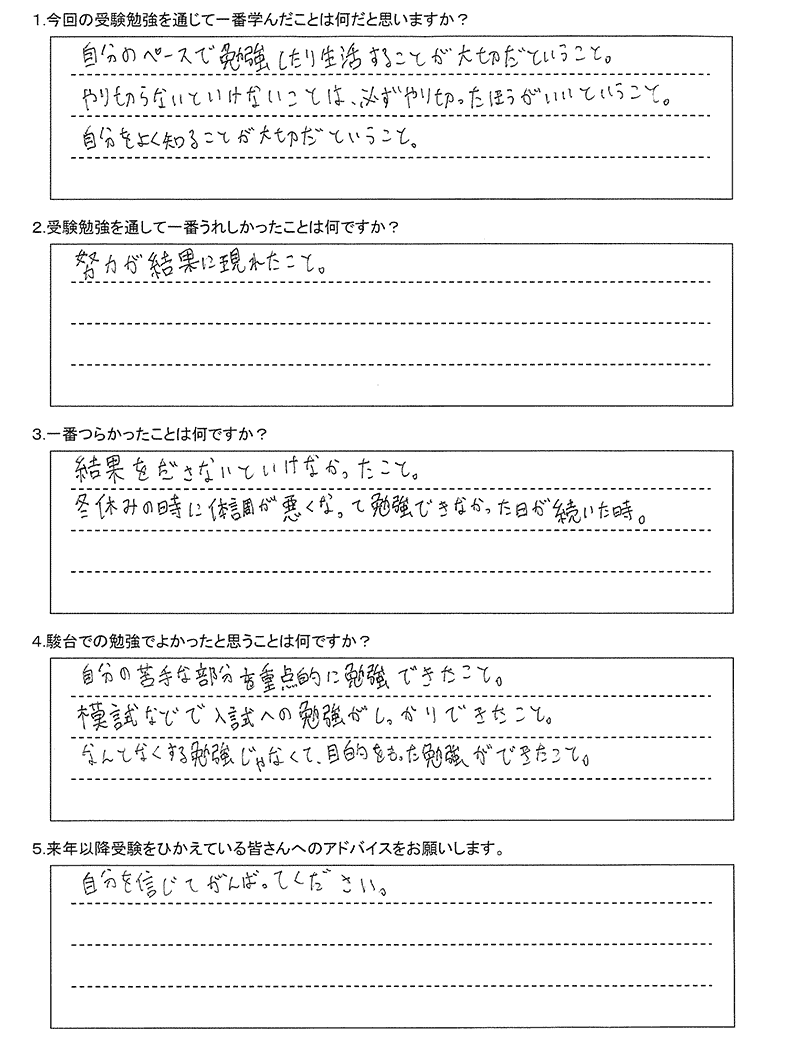 1.今回の受験勉強を通じて一番学んだことは何だと思いますか？
自分のペースで勉強したり生活することが大切だということ。
やり切らないといけないことは、必ずやり切ったほうがいいということ。
自分をよく知ることが大切だということ。
2.受験勉強を通して一番うれしかったことは何ですか？
努力が結果に現れたこと。
3.一番つらかったことは何ですか？
結果をださないといけなかったこと。
冬休みの時に体調が悪くなって勉強できなかった日が続いた時。
4.駿台での勉強でよかったと思うことは何ですか？
自分の苦手な部分を重点的に勉強できたこと。
模試などで入試への勉強がしっかりできたこと。
なんとなくする勉強じゃなくて、目的をもった勉強ができたこと。
5.来年以降受験をひかえている皆さんへのアドバイスをお願いします。
自分を信じてがんばってください。